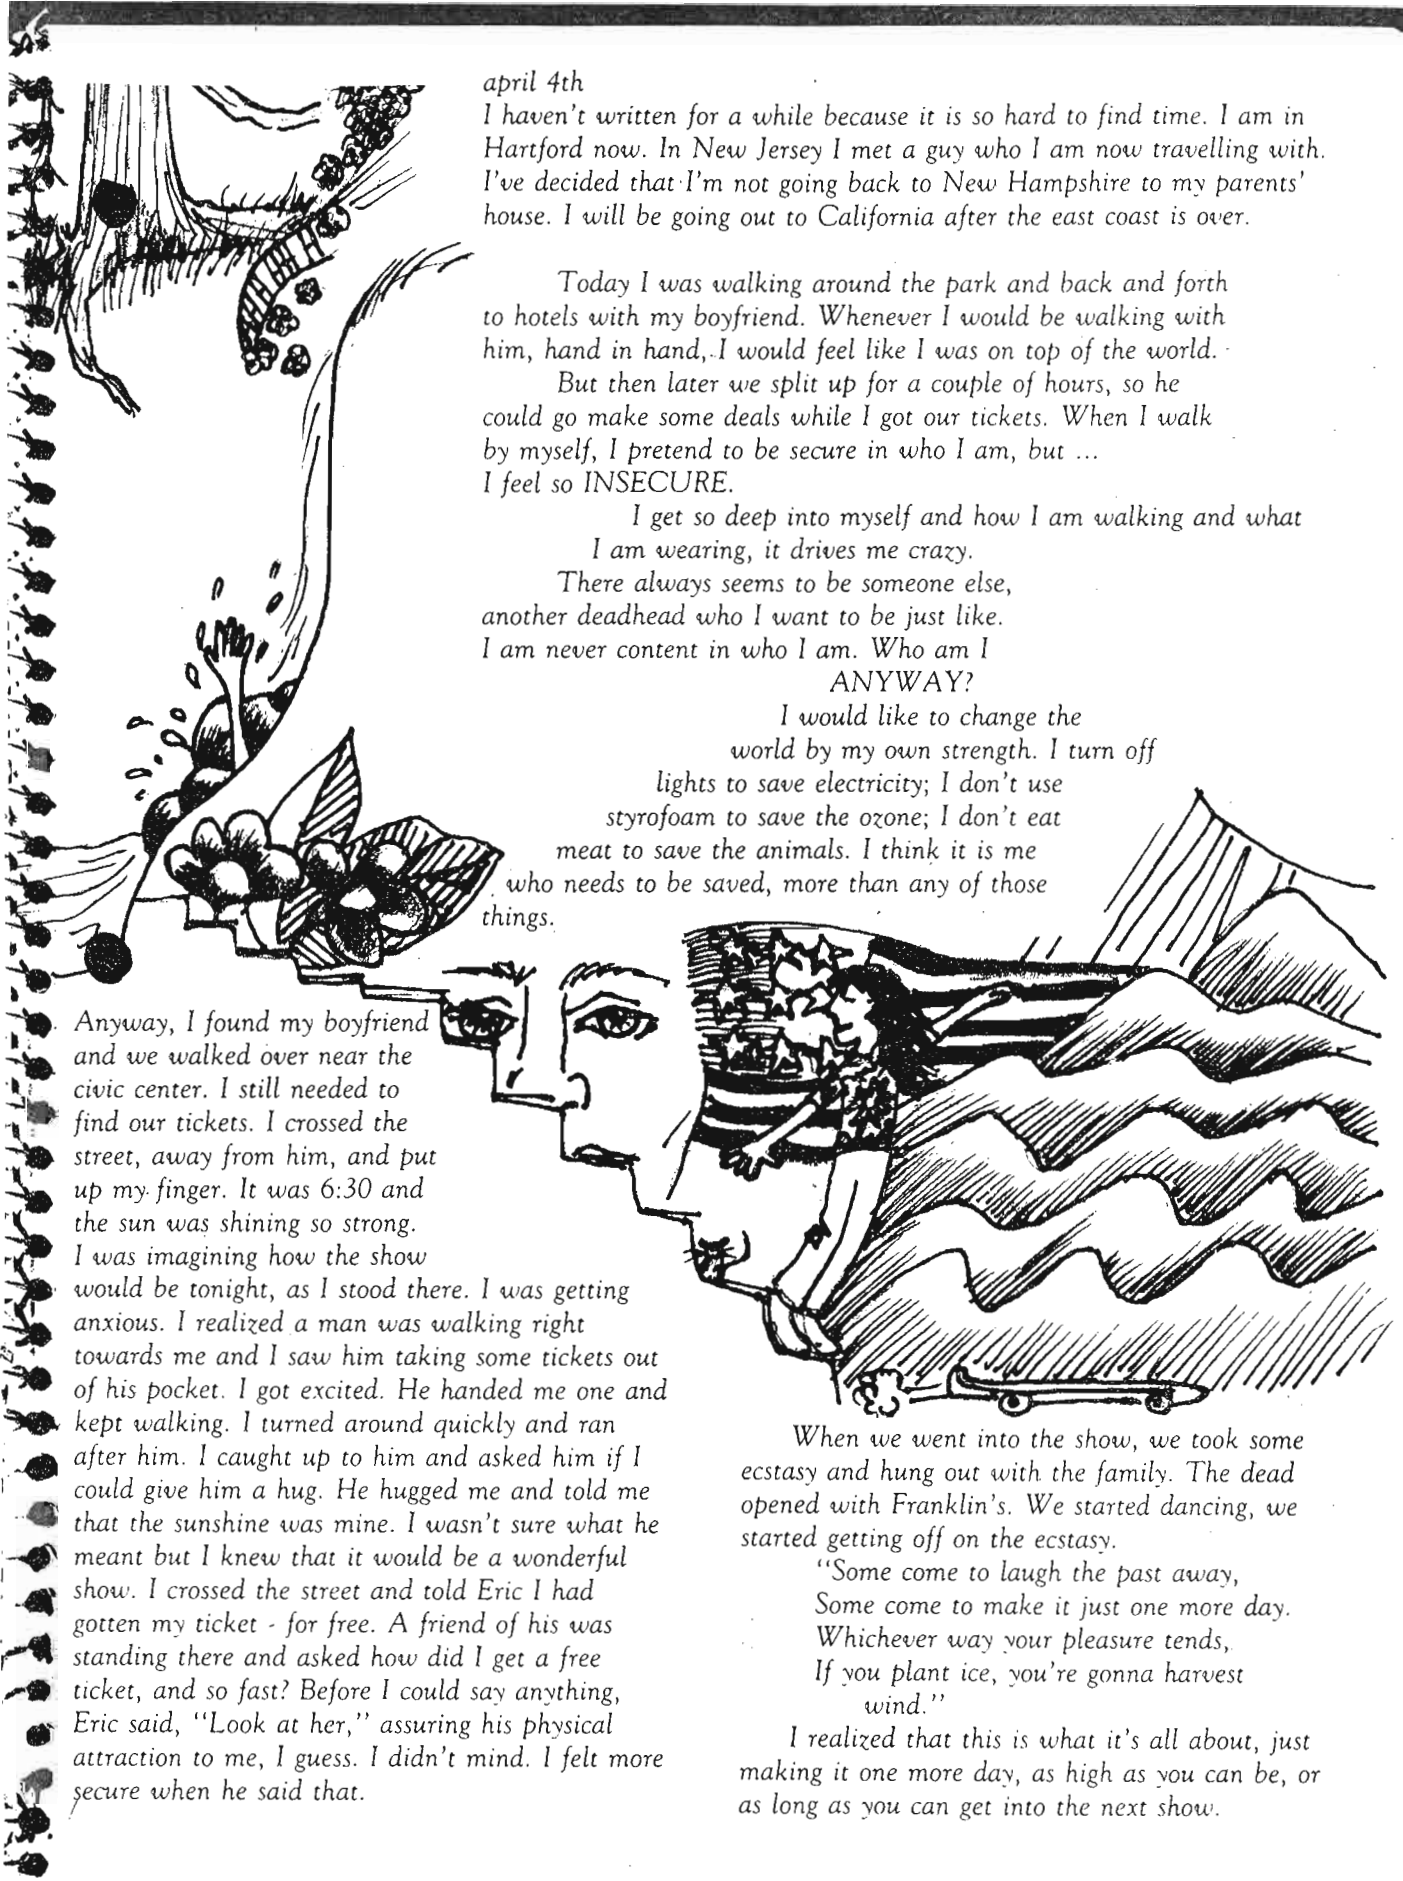 april 4th
I haven't written for a while because it is so hard to find time. I am in
Hartford now. In New Jersey I met a guy who I am now travelling with.
I've decided that I'm not going back to New Hampshire to my parents'
house. I will be going out to California after the east coast is over.
Today I was walking around the park and back and forth
to hotels with my boyfriend. Whenever I would be walking with
him, hand in hand, I would feel like I was on top of the world.
But then later we split up for a couple of hours, so he
could go make some deals while I got our tickets. When I walk
by myself, I pretend to be secure in who I am, but ...
I feel so INSECURE.
I get so deep into myself and how I am walking and what
I am wearing, it drives me crazy.
There always seems to be someone else,
another deadhead who I want to be just like.
I am never content in who I am. Who am I
ANYWAY?
I would like to change the
world by my own strength. I turn off
lights to save electricity; I don't use
styrofoam to save the ozone; I don't eat
meat to save the animals. I think it is me
who needs to be saved, more than any of those
things.
Anyway, I found my boyfriend
and we walked over near the
civic center. I still needed to
find our tickets. I crossed the
street, away from him, and put
up my finger. It was 6:30 and
the sun was shining so strong.
I was imagining how the show
would be tonight, as I stood there. I was getting
anxious. I realized a man was walking right
towards me and I saw him taking some tickets out
of his pocket. I got excited. He handed me one and
kept walking. I turned around quickly and ran
after him. I caught up to him and asked him if I
could give him a hug. He hugged me and told me
that the sunshine was mine. I wasn't sure what he
meant but I knew that it would be a wonderful
show. I crossed the street and told Eric I had
gotten my ticket - for free. A friend of his was
standing there and asked how did I get a free
ticket, and so fast? Before I could say anything,
Eric said, "Look at her," assuring his physical
attraction to me, I guess. I didn't mind. I felt more
secure when he said that.
When we went into the show, we took some
ecstasy and hung out with the family. The dead
opened with Franklin's. We started dancing, we
started getting off on the ecstasy.
"Some come to laugh the past away,
Some come to make it just one more day.
Whichever way your pleasure tends,
If you plant ice, you're gonna harvest
wind."
I realized that this is what it's all about, just
making it one more day, as high as you can be, or
as long as you can get into the next show.